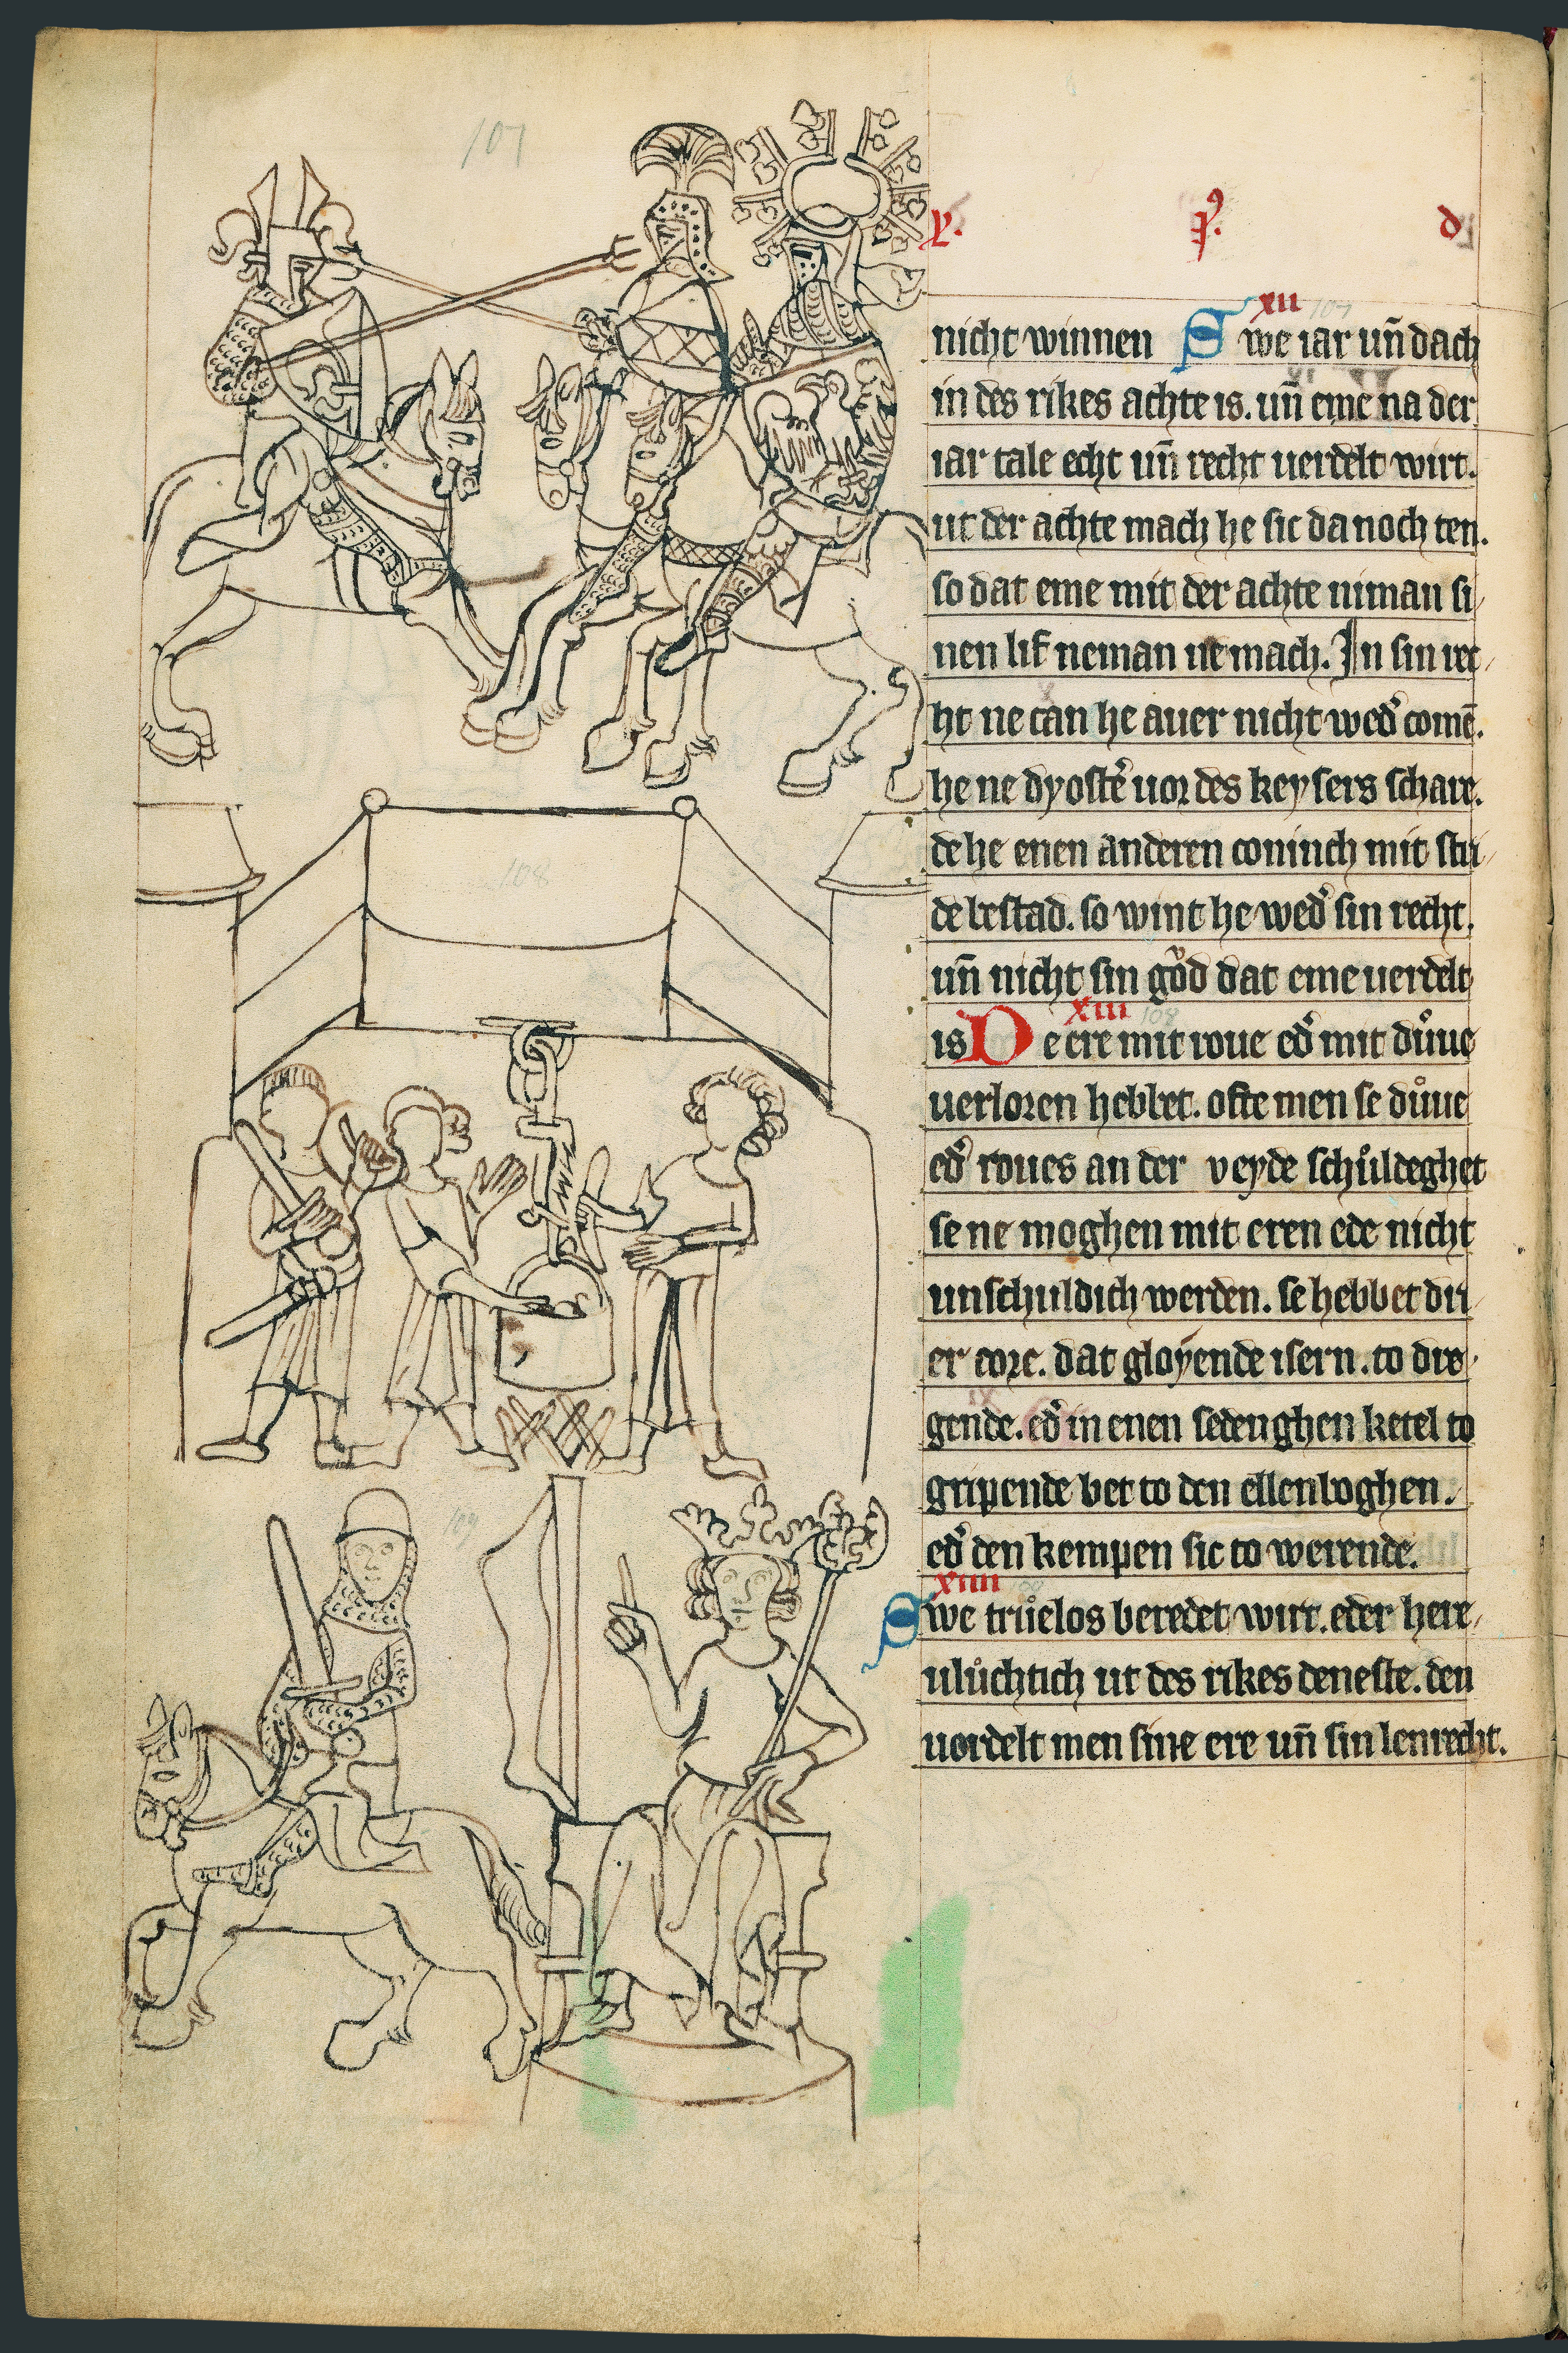 107
y. p᷒. d
xii 107
nicht winnen Swe iar uñ dach
in des rikes achte is. uñ eme na der
iar tale echt uñ recht uerdelt wirt.
ut der achte mach he sic da noch ten.
so dat eme mit der achte niman si
nen lif neman ne mach. In sin rec
ht ne can he auer nicht wed᷒ comē.
he ne dyostē uor des keysers schare.
de he enen anderen coninch mit stri
de bestad. so wint he wed᷒ sin recht.
uñ nicht sin gůd dat eme uerdelt
xiii 108
is De ere mit roue ed᷒ mit důue
uerloren hebbet. ofte men se důue
ed᷒ roues an der veyde schůldeghet
se ne moghen mit eren ede nicht
unschuldich werden. se hebbet dri
er core. dat gloyende isern. to dre
gende. ed᷒ in enen sedenghen ketel to
gripende bet to den ellenboghen.
ed᷒ den kempen sic to werende.
xiiii 109
Swe trůelos beredet wirt. eder here
ulůchtich ut des rikes deneste. den
uordelt men sine ere uñ sin lenrecht.
108
109